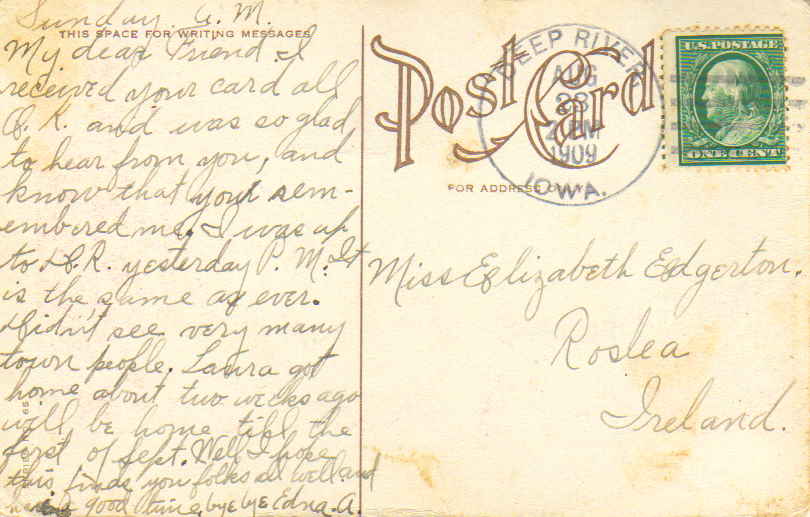 Sunday. A. M.
THIS SPACE FOR WRITING MESSAGES
My dear Friend. I
received your card all
O. K. and was so glad
to hear from you, and
know that you rem-
embered me. I was up
to D. R. yesterday P. M. It
is the same as ever.
Didn't see very many
town people. Laura got
home about two weeks ago
will be home till the
first of Sept. Well I hope
this finds you folks all well and
having good time, bye bye Edna. A.
Post Card
FOR ADDRESS ONLY
DEEP RIVER
AUG
23
2 PM
1909
IOWA.
U.S. POSTAGE
ONE CENT
Miss Elizabeth Edgerton.
Roslea
Ireland.